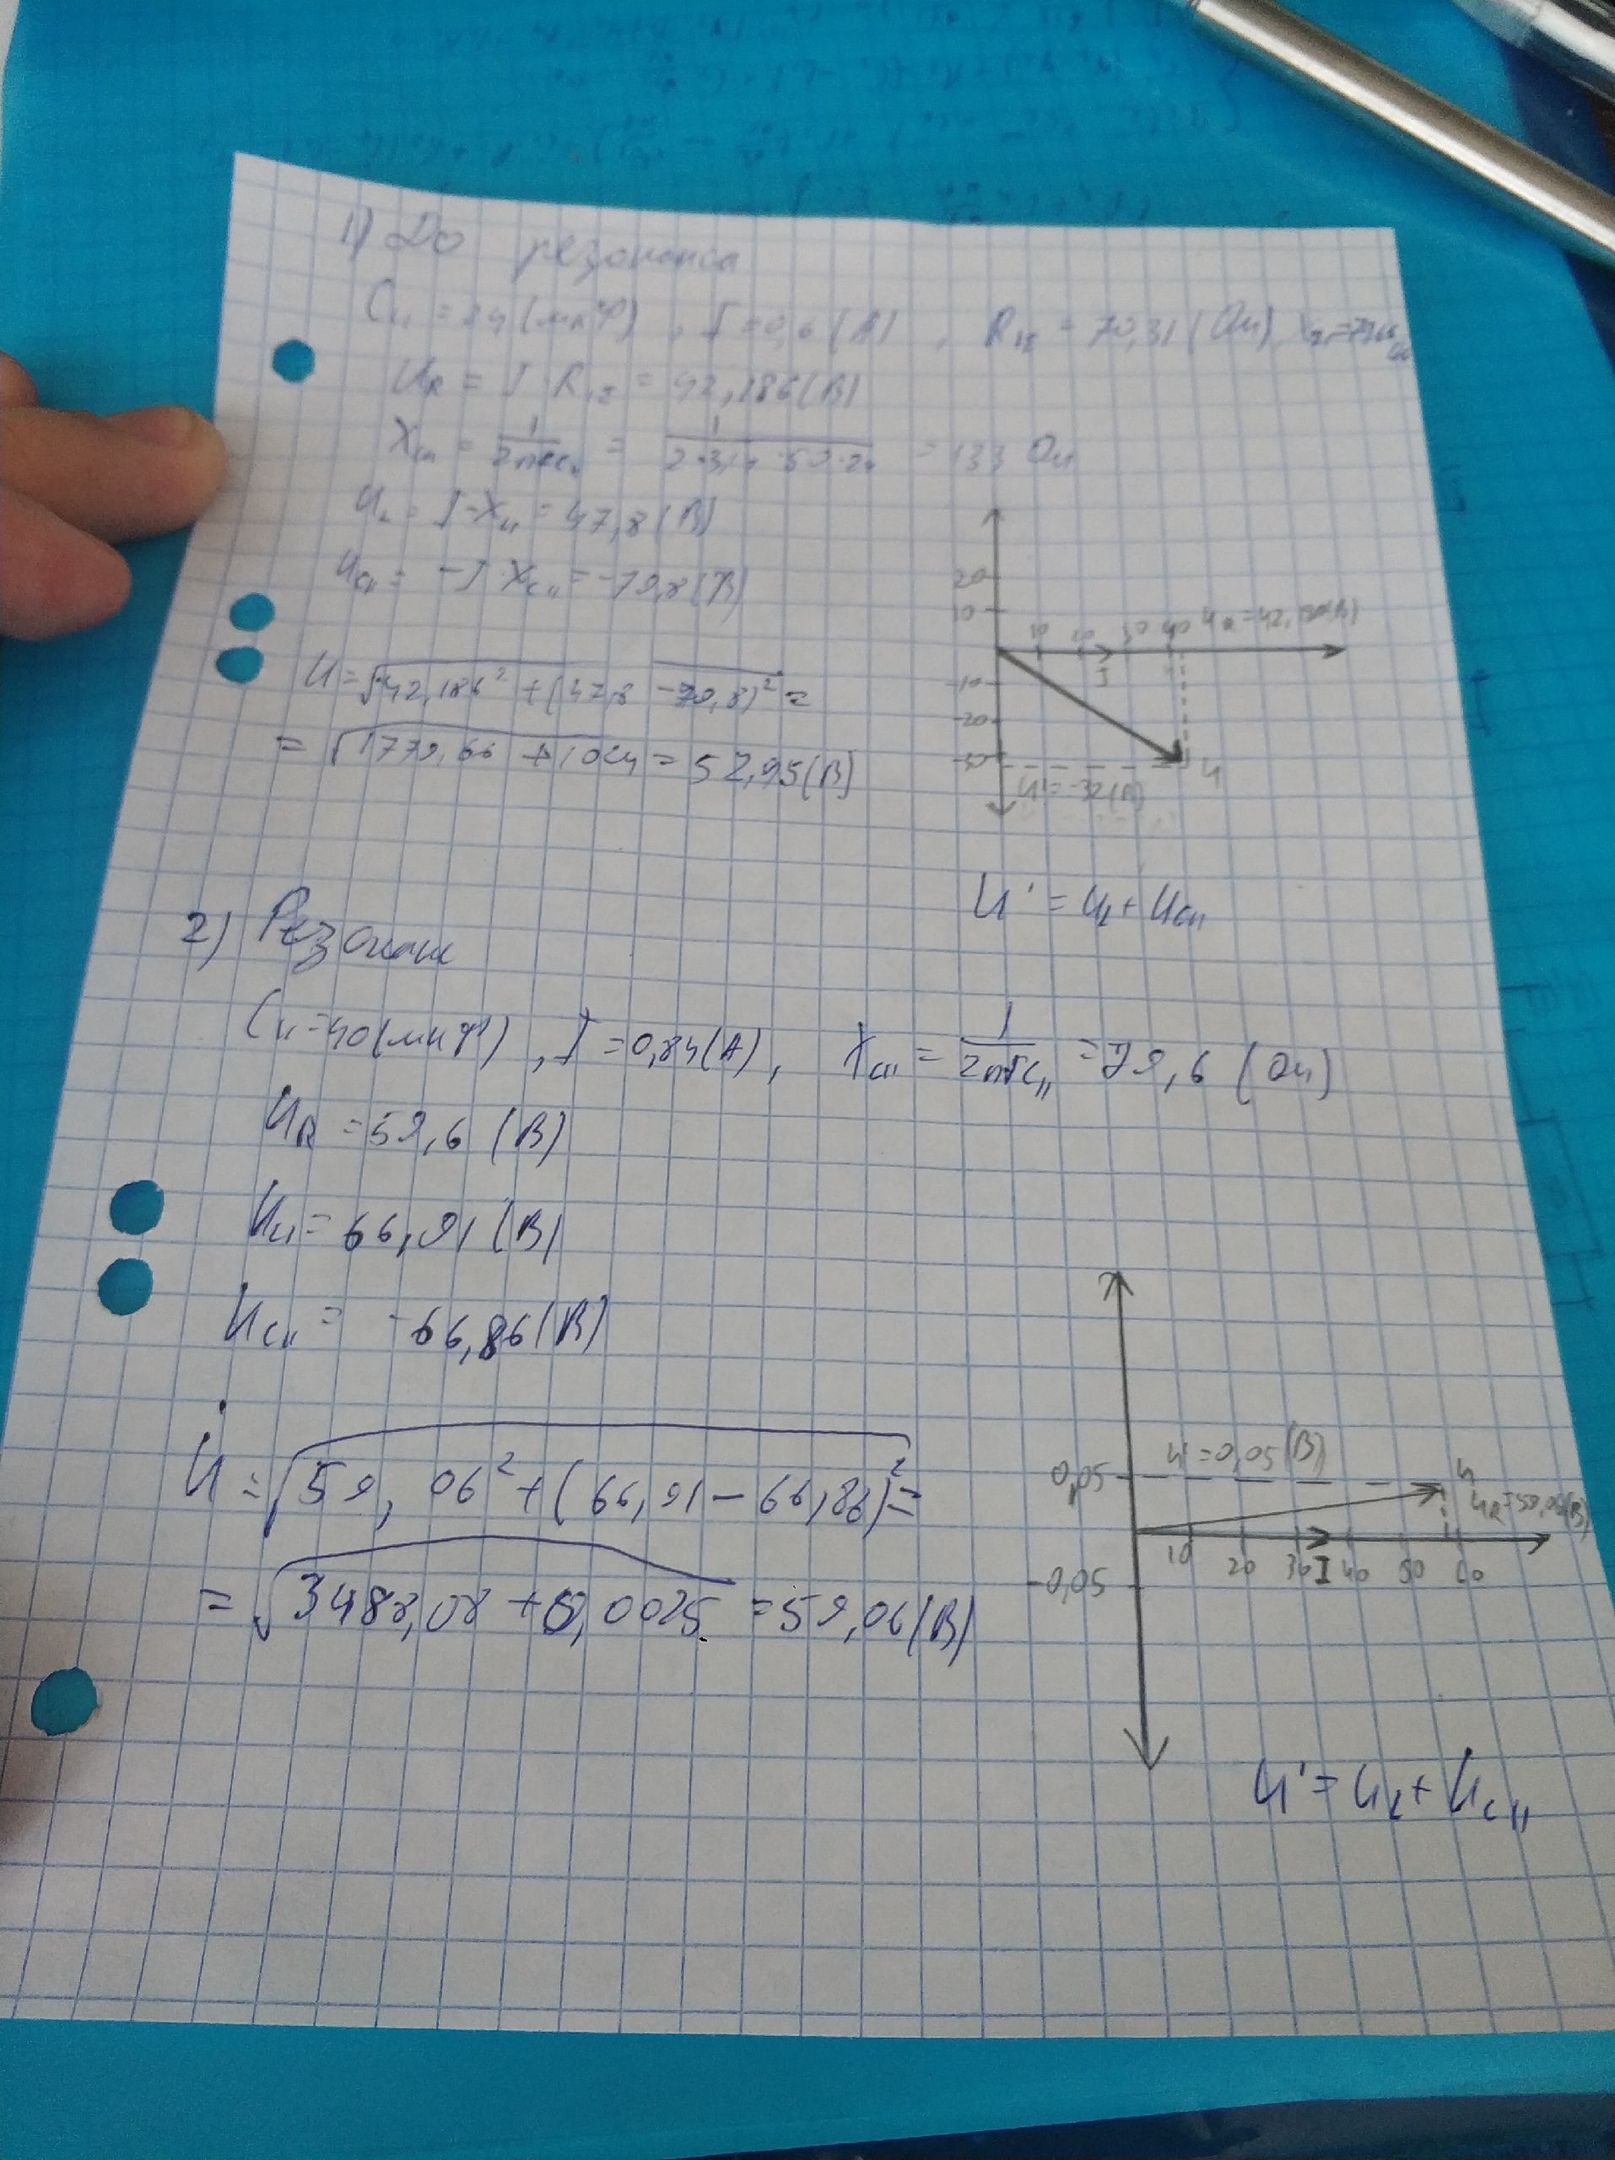 1) До резонанса
Cп = 24 (мкФ), I = 0,6 (А), Rк = 70,31 (Ом),
UR = I Rк = 42,186 (В)
Xcп = 1/2πfcп = 1/2·3,14·50·24 = 133 Ом
UL = I·Xк = 47,8 (В)
Ucп = -I·Xcп = -79,8 (В)
U = √42,186² + (47,8 - 79,8)² =
= √1779,66 + 1024 = 52,95 (В)
20
10
10 20 30 40 UR = 42,186 (В)
I
-10
-20
-30
U' = -32 (В)
U
U' = UL + Ucп
2) Резонанс
Cп = 40 (мкФ), I = 0,84 (А), Xcп = 1/2πfcп = 79,6 (Ом)
UR = 59,6 (В)
UL = 66,91 (В)
Ucп = -66,86 (В)
U̇ = √59,06² + (66,91 - 66,86)² =
= √3488,08 + 0,0025 = 59,06 (В)
0,05 U' = 0,05 (В) U
UR = 59,06 (В)
10 20 30 I 40 50 60
-0,05
U' = UL + Ucп